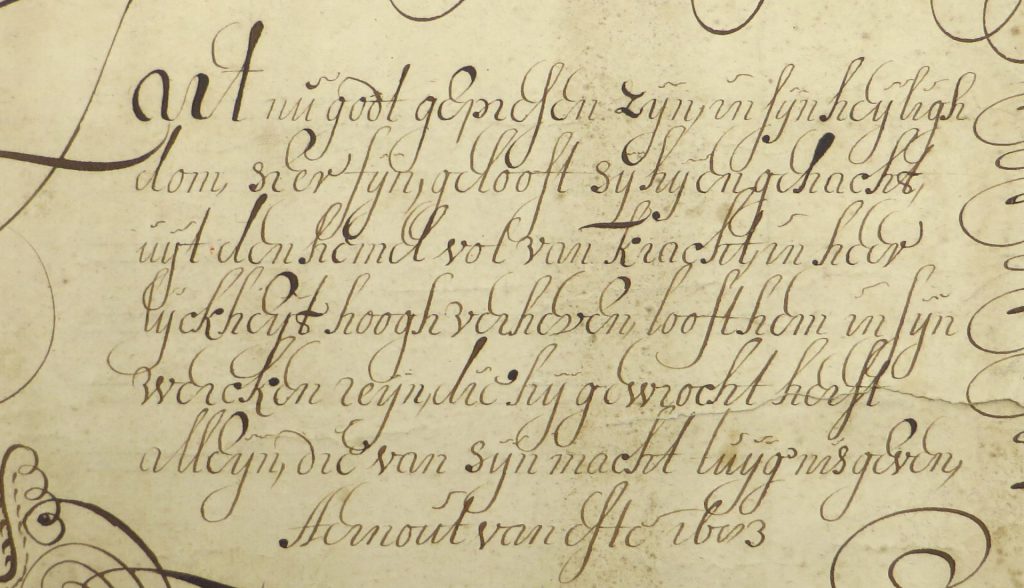 Laet nu godt gepresen zijn, in sijn heyligh
dom, seer fijn, gelooft sij hij en gehacht,
uijt den hemel vol van kracht, in heer
lijckheijt hoogh verheven, looft hem in sijn
wercken reijn, die hij gewrocht heeft
alleijn, die van sijn macht tuijgnis geven,
Aernout van Este